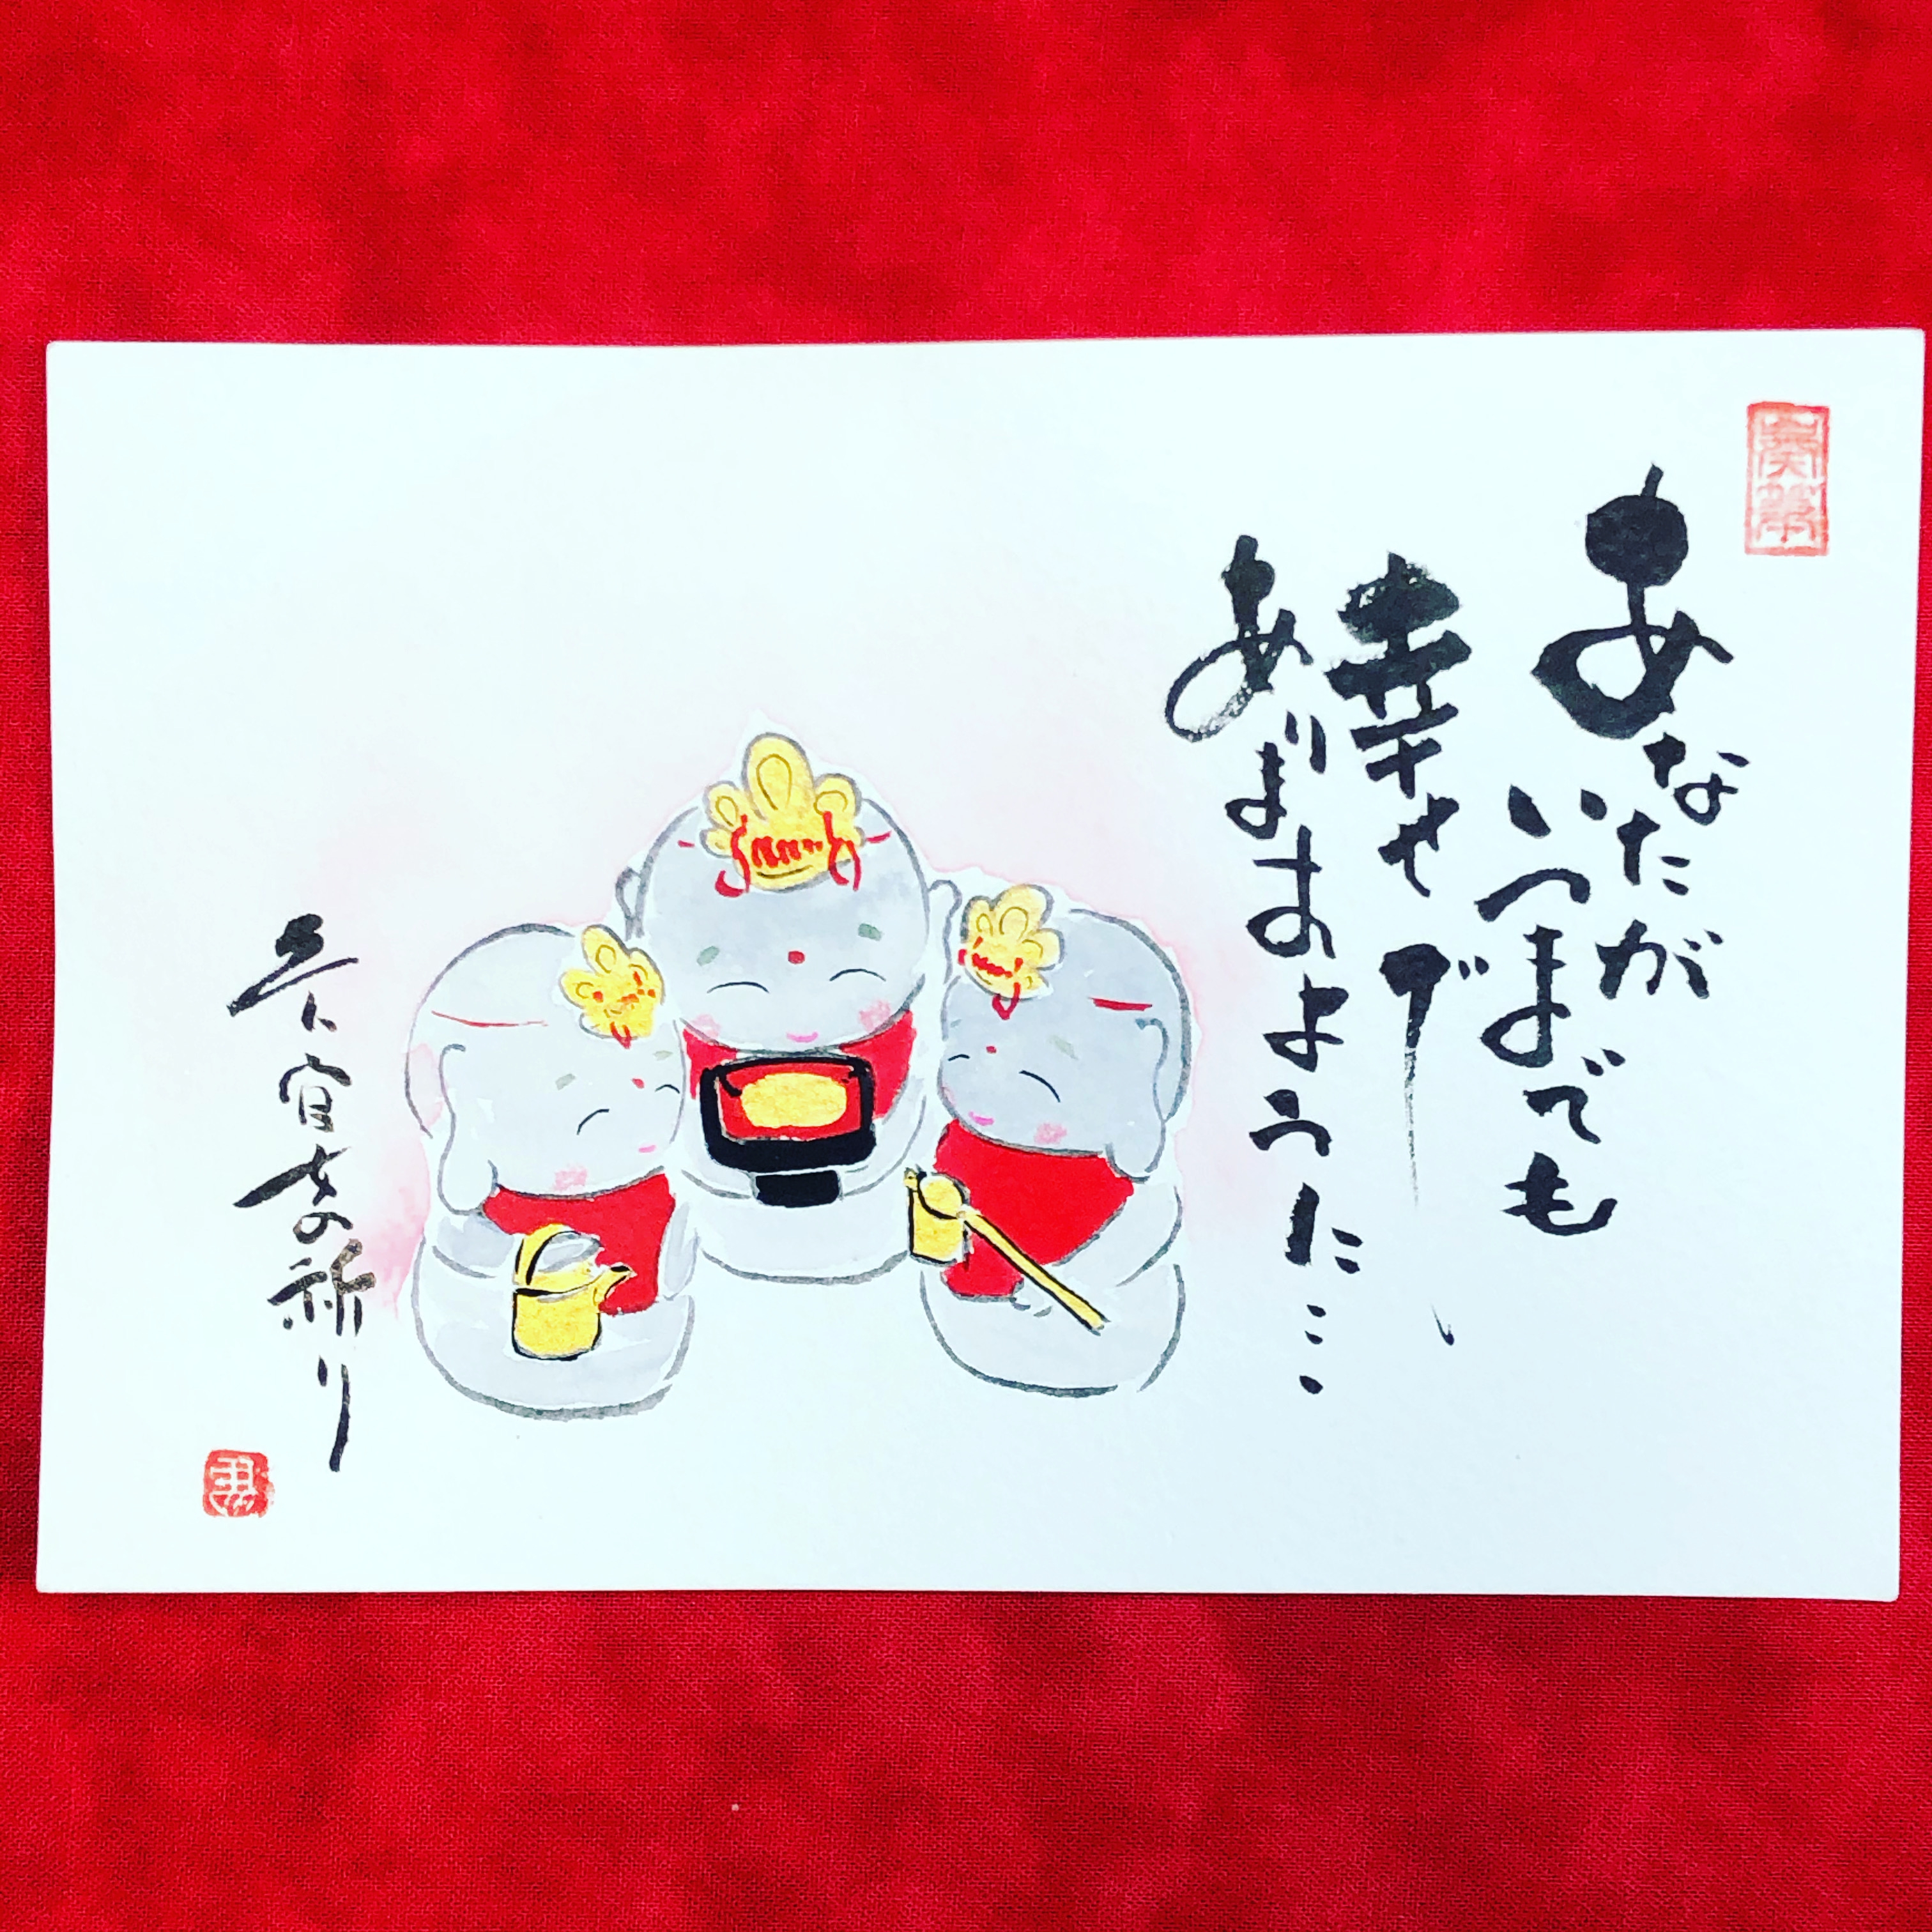 あなたが
いつまでも
幸せで
ありますように…
三人官女の祈り